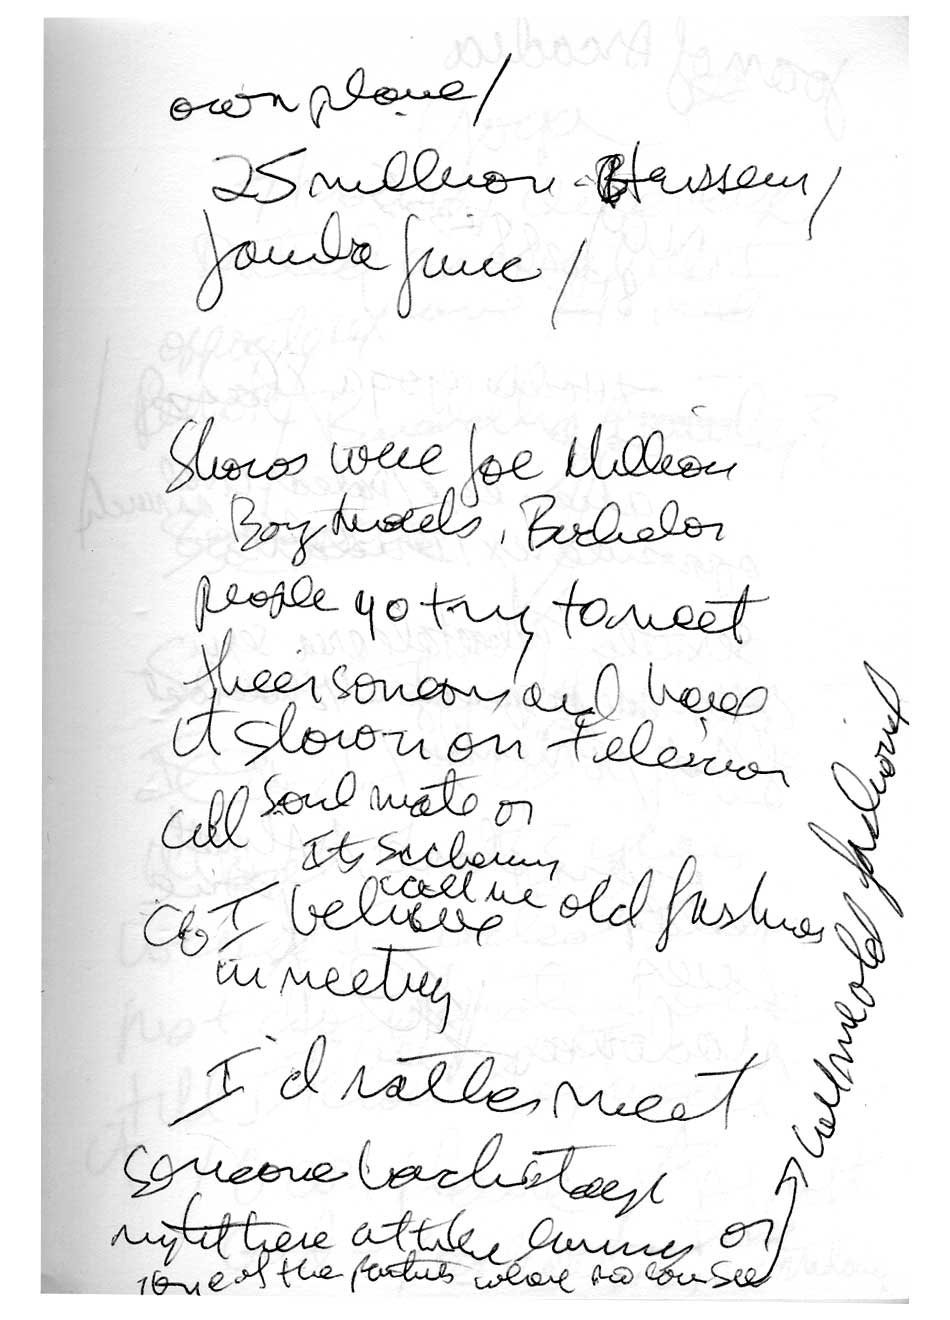 own plane/
25 million - Hussein/
Shows were Joe Million
Boy meets, Bachelor
people go try to meet
their someone and have
it shown on Television
call Soul mate or
Its
call me old fashion
I believe
in meeting
I'd rather meet
someone backstage
right here at the or
one of the parties where no one see
call me old fashioned